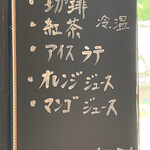 ・珈琲
・紅茶 冷、温
・アイス ラテ
・オレンジジュース
・マンゴ ジュース